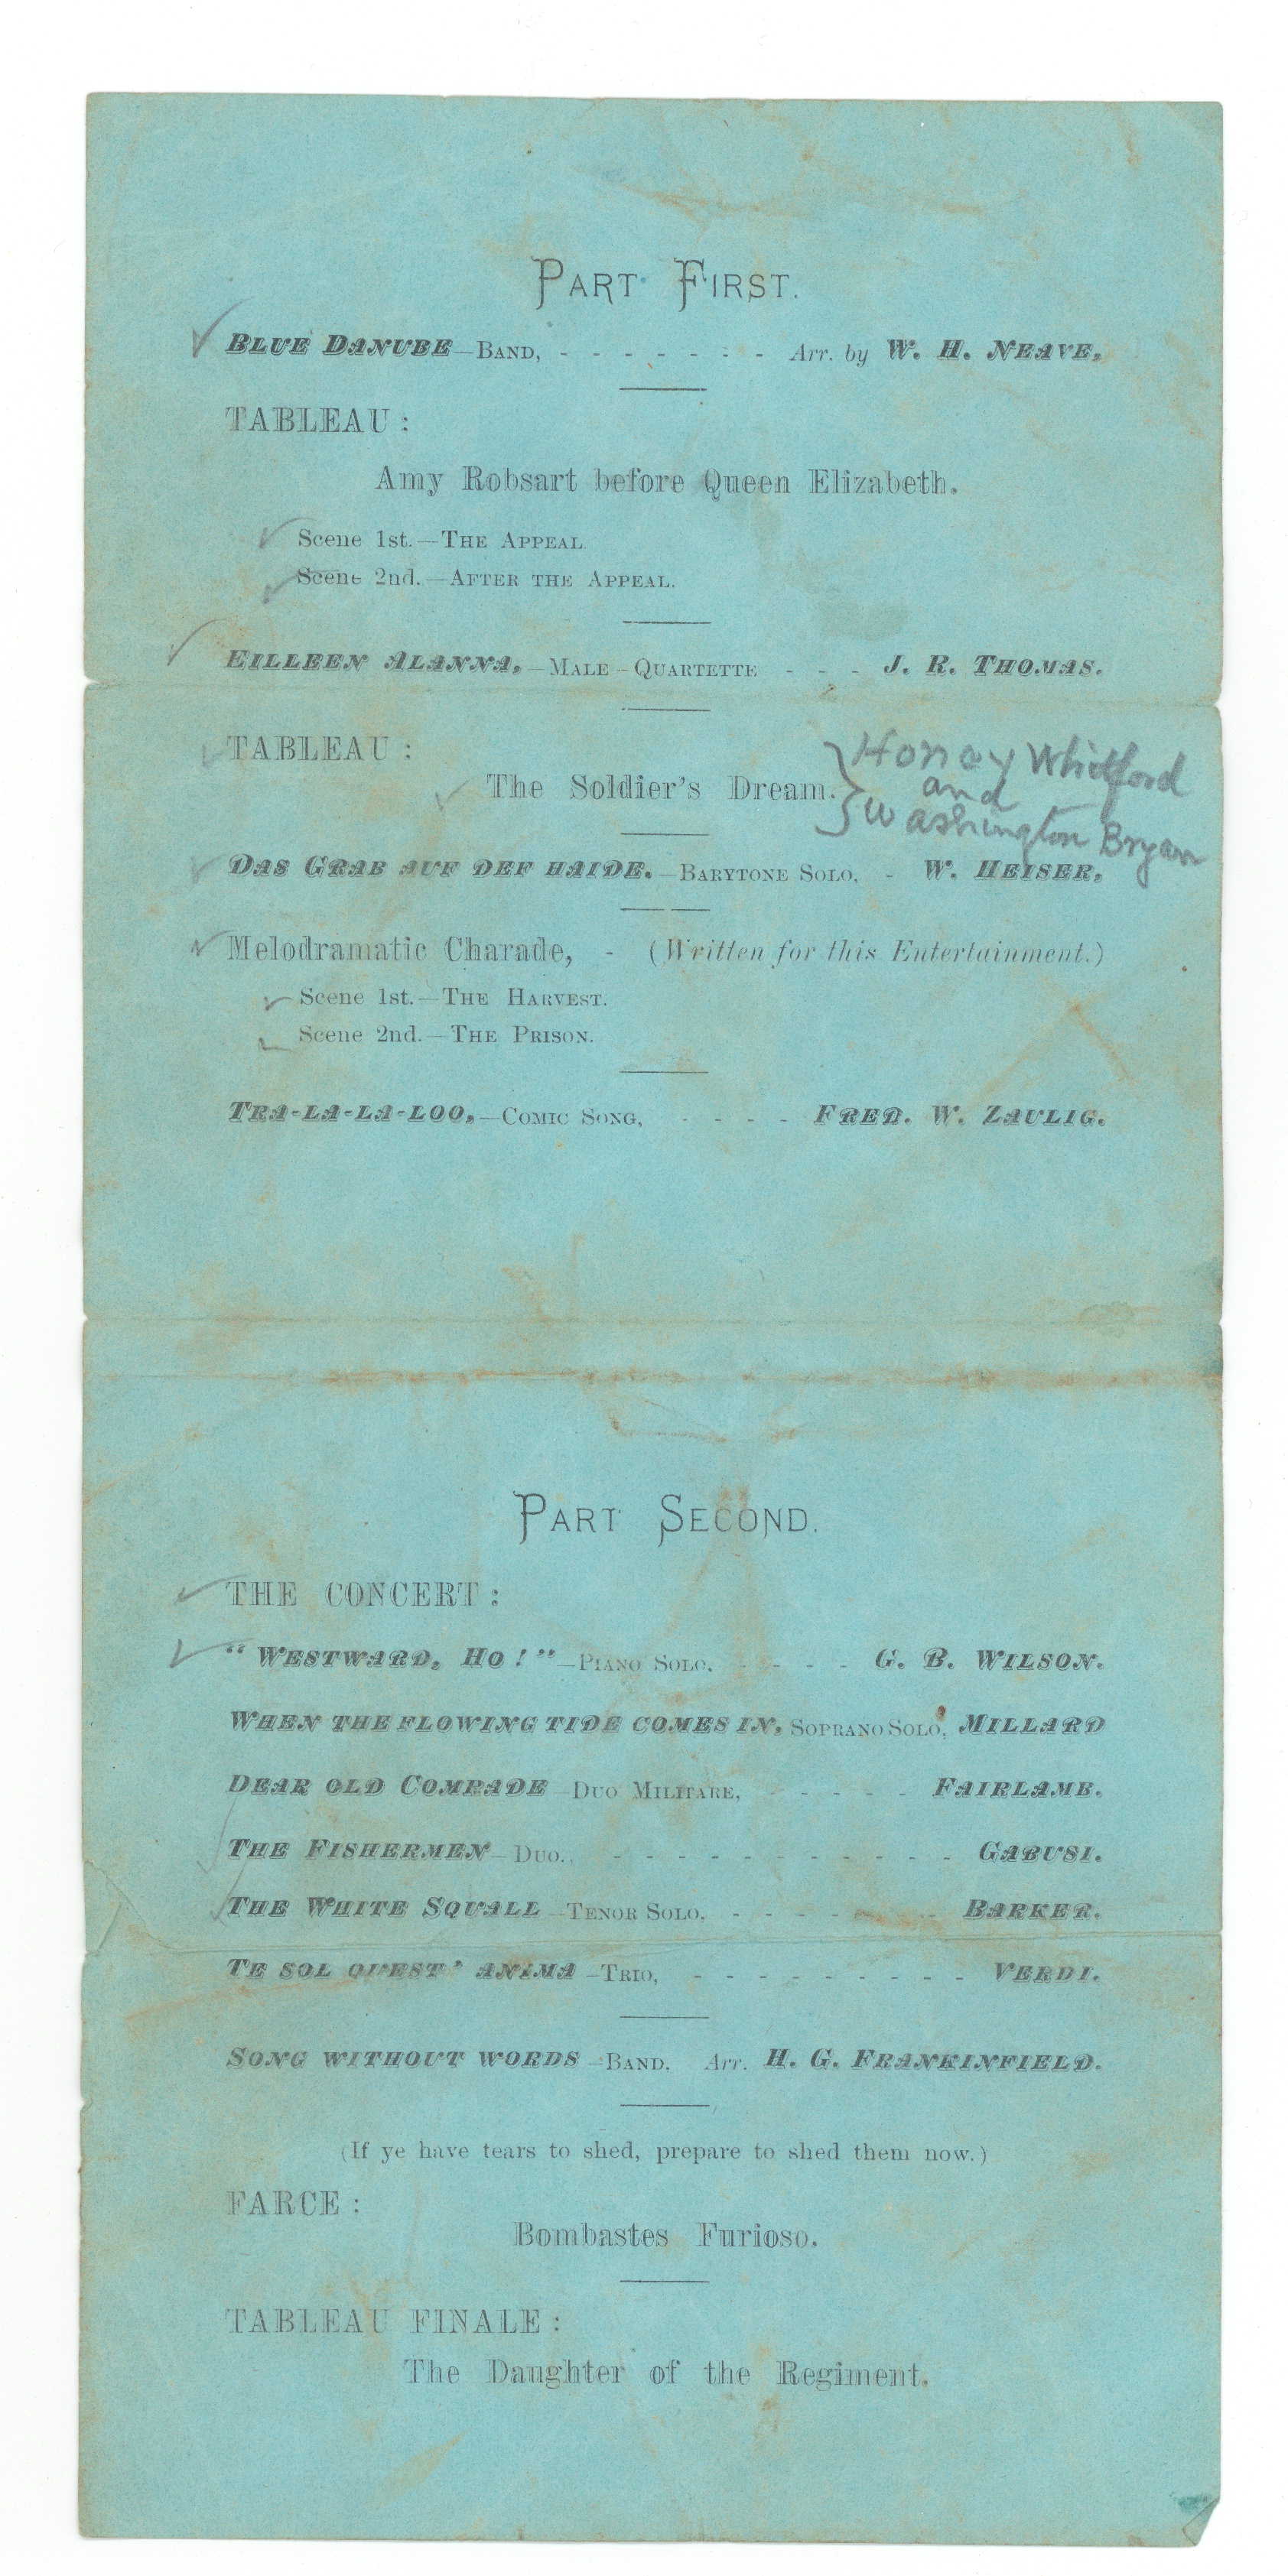 PART FIRST.
BLUE DANUBE—BAND, - - - - - - - Arr. by W. H. NEAVE,
TABLEAU:
Amy Robsart before Queen Elizabeth.
Scene 1st.—THE APPEAL
Scene 2nd.—AFTER THE APPEAL.
EILLEEN ALANNA,—MALE-QUARTETTE - - - J. R. THOMAS.
TABLEAU:
The Soldier's Dream. } Honey Whitford
and
Washington Bryan
DAS GRAB AUF DEF HAIDE.—BARYTONE SOLO, - W. HEISER,
Melodramatic Charade, - (Written for this Entertainment.)
Scene 1st.—THE HARVEST.
Scene 2nd.—THE PRISON.
TRA-LA-LA-LOO,—COMIC SONG, - - - - FRED. W. ZAULIG.
PART SECOND.
THE CONCERT:
"WESTWARD, HO!"—PIANO SOLO, - - - - G. B. WILSON.
WHEN THE FLOWING TIDE COMES IN, SOPRANO SOLO, MILLARD
DEAR OLD COMRADE—DUO MILITARE, - - - - - FAIRLAMB.
THE FISHERMEN—DUO., - - - - - - - - - - - GABUSI.
THE WHITE SQUALL—TENOR SOLO, - - - - - - - BARKER.
TE SOL QUEST' ANIMA—TRIO, - - - - - - - - - VERDI.
SONG WITHOUT WORDS—BAND. Arr. H. G. FRANKINFIELD.
(If ye have tears to shed, prepare to shed them now.)
FARCE:
Bombastes Furioso.
TABLEAU FINALE:
The Daughter of the Regiment.